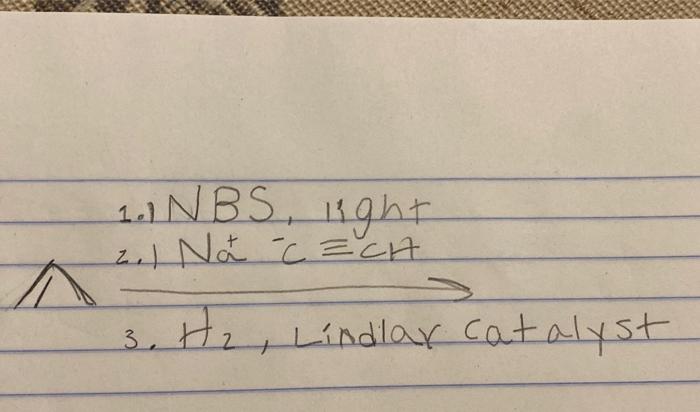 1.) NBS, light
2.) Na⁺ ⁻C≡CH
3. H₂, Lindlar catalyst